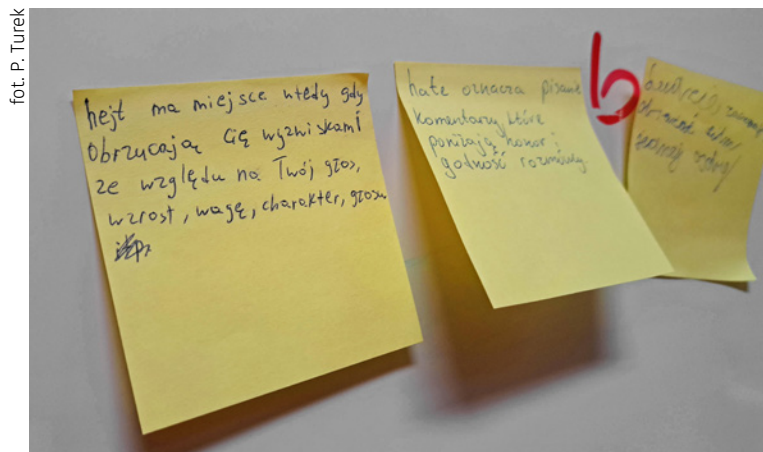 fot. P. Turek
hejt ma miejsce wtedy gdy
obrzucają Cię wyzwiskami
ze względu na Twój głos,
wzrost, wagę, charakter, głosu
itp.
hate oznacza pisanie
komentarzy, które
poniżają honor i
godność rozmówcy.
b